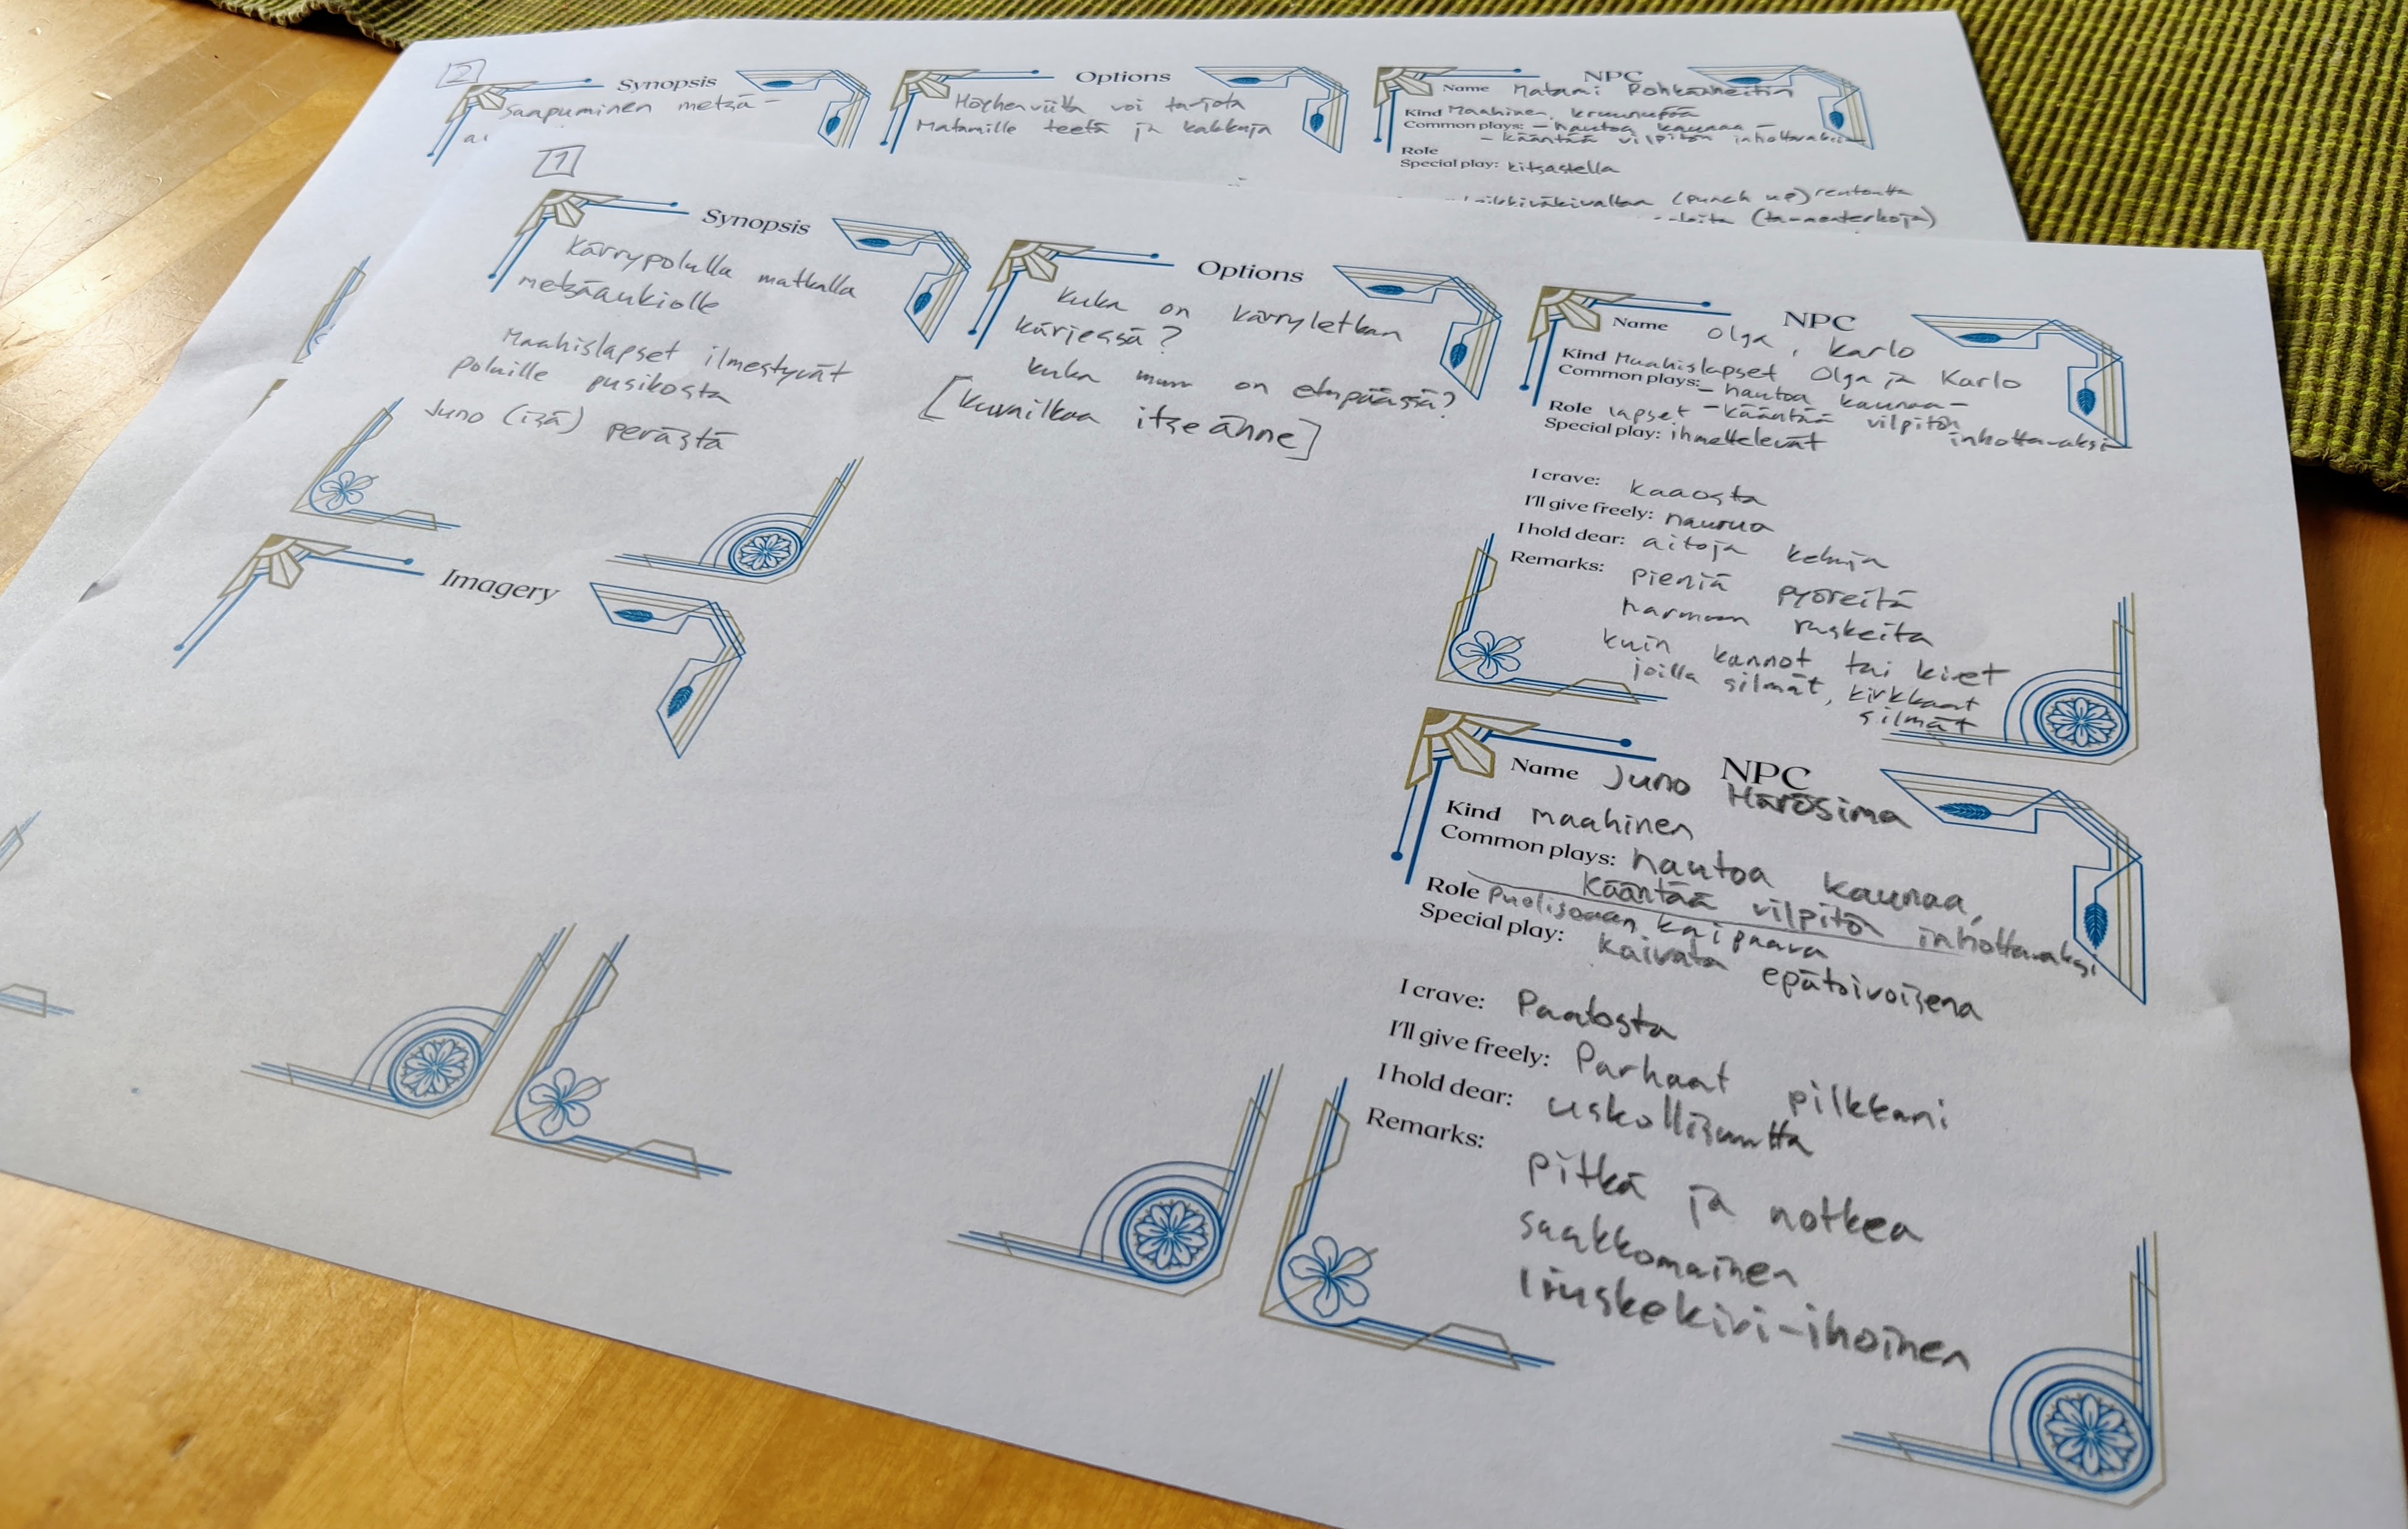 2
Synopsis
Saapuminen metsä-
Options
voi tarjota
Matamille teetä ja kakkuja
NPC
Name Matami
Kind Maahinen,
Common plays: - nautoa kaunaa -
- kääntää vilpitön inhottavaksi
Role
Special play: kitsastella
(punch up) rentoutta
1
Synopsis
Kärrypolulla matkalla
metsäaukiolle
Maahislapset ilmestyvät
poluille pusikosta
Juno (isä) perästä
Options
Kuka on kärryletkan
kärjessä?
Kuka muu on etupäässä?
[Kuvailkaa itseänne]
NPC
Name Olga, Karlo
Kind Maahislapset Olga ja Karlo
Common plays: - nautoa kaunaa -
Role lapset - kääntää vilpitön
inhottavaksi
Special play: ihmettelevät
I crave: kaaosta
I'll give freely: naurua
I hold dear: aitoja kehuja
Remarks: pieniä pyöreitä
harmaan ruskeita
kuin kannot tai kivet
joilla silmät, kirkkaat
silmät
Imagery
NPC
Name Juno Härösima
Kind maahinen
Common plays: nautoa kaunaa,
kääntää vilpitön inhottavaksi
Role puolisoaan kaipaava
Special play: kaivata epätoivoisena
I crave: Paalosta
I'll give freely: Parhaat pilkkani
I hold dear: uskollisuutta
Remarks: pitkä ja notkea
saukkomainen
liuskekivi-ihoinen